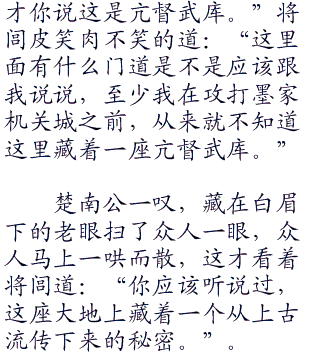 才你说这是亢督武库。”将
闾皮笑肉不笑的道：“这里
面有什么门道是不是应该跟
我说说，至少我在攻打墨家
机关城之前，从来就不知道
这里藏着一座亢督武库。”
楚南公一叹，藏在白眉
下的老眼扫了众人一眼，众
人马上一哄而散，这才看着
将闾道：“你应该听说过，
这座大地上藏着一个从上古
流传下来的秘密。”。